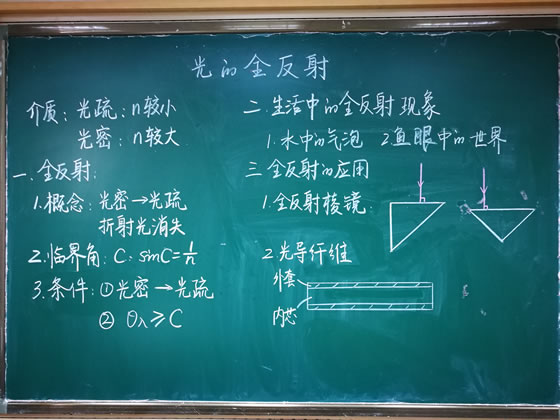 光的全反射
介质：光疏：n较小
光密：n较大
一.全反射：
1.概念：光密→光疏
折射光消失
2.临界角：C. sinC=1/n
3.条件：①光密→光疏
② θ入≥C
二.生活中的全反射现象
1.水中的气泡 2.鱼眼中的世界
三.全反射的应用
1.全反射棱镜
2.光导纤维
外套
内芯